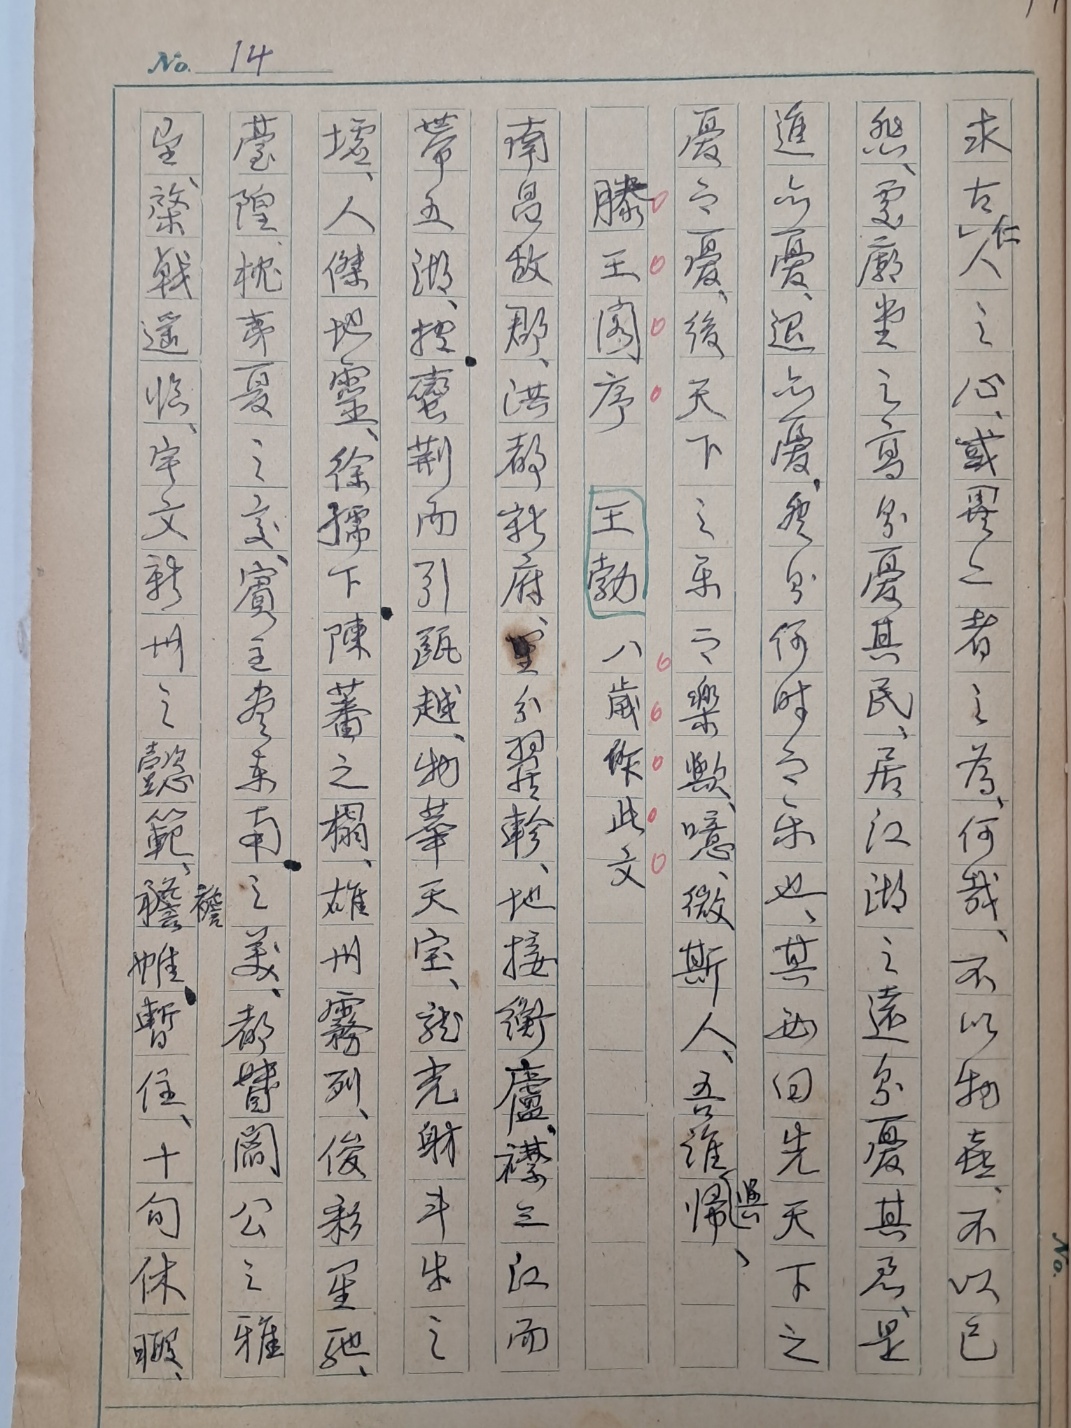 No. 14
求古仁人之心、或異二者之為、何哉、不以物喜、不以己
悲、處廟堂之高則憂其民、居江湖之遠則憂其君、是
進亦憂、退亦憂、然則何时而乐也、其必曰先天下之
憂而憂、後天下之乐而樂歟、噫、微斯人、吾誰與歸、
滕王阁序 王勃 八歲作此文
南昌故郡、洪都新府、星分翼軫、地接衡廬、襟三江而
帶五湖、控蠻荆而引甌越、物華天宝、龙光射斗牛之
墟、人傑地靈、徐孺下陳蕃之榻、雄州霧列、俊彩星馳、
臺隍枕夷夏之交、賓主尽东南之美、都督閻公之雅
望、棨戟遥临、宇文新州之懿範、襜帷暫住、十旬休暇、
No.